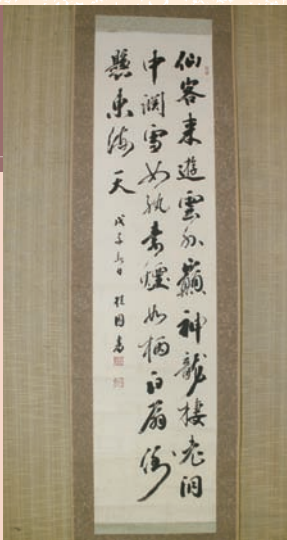 仙客来遊雲外巔神龍棲老洞
中淵雪如紈素煙如柄白扇倒
懸東海天
戊子 日 桂 書